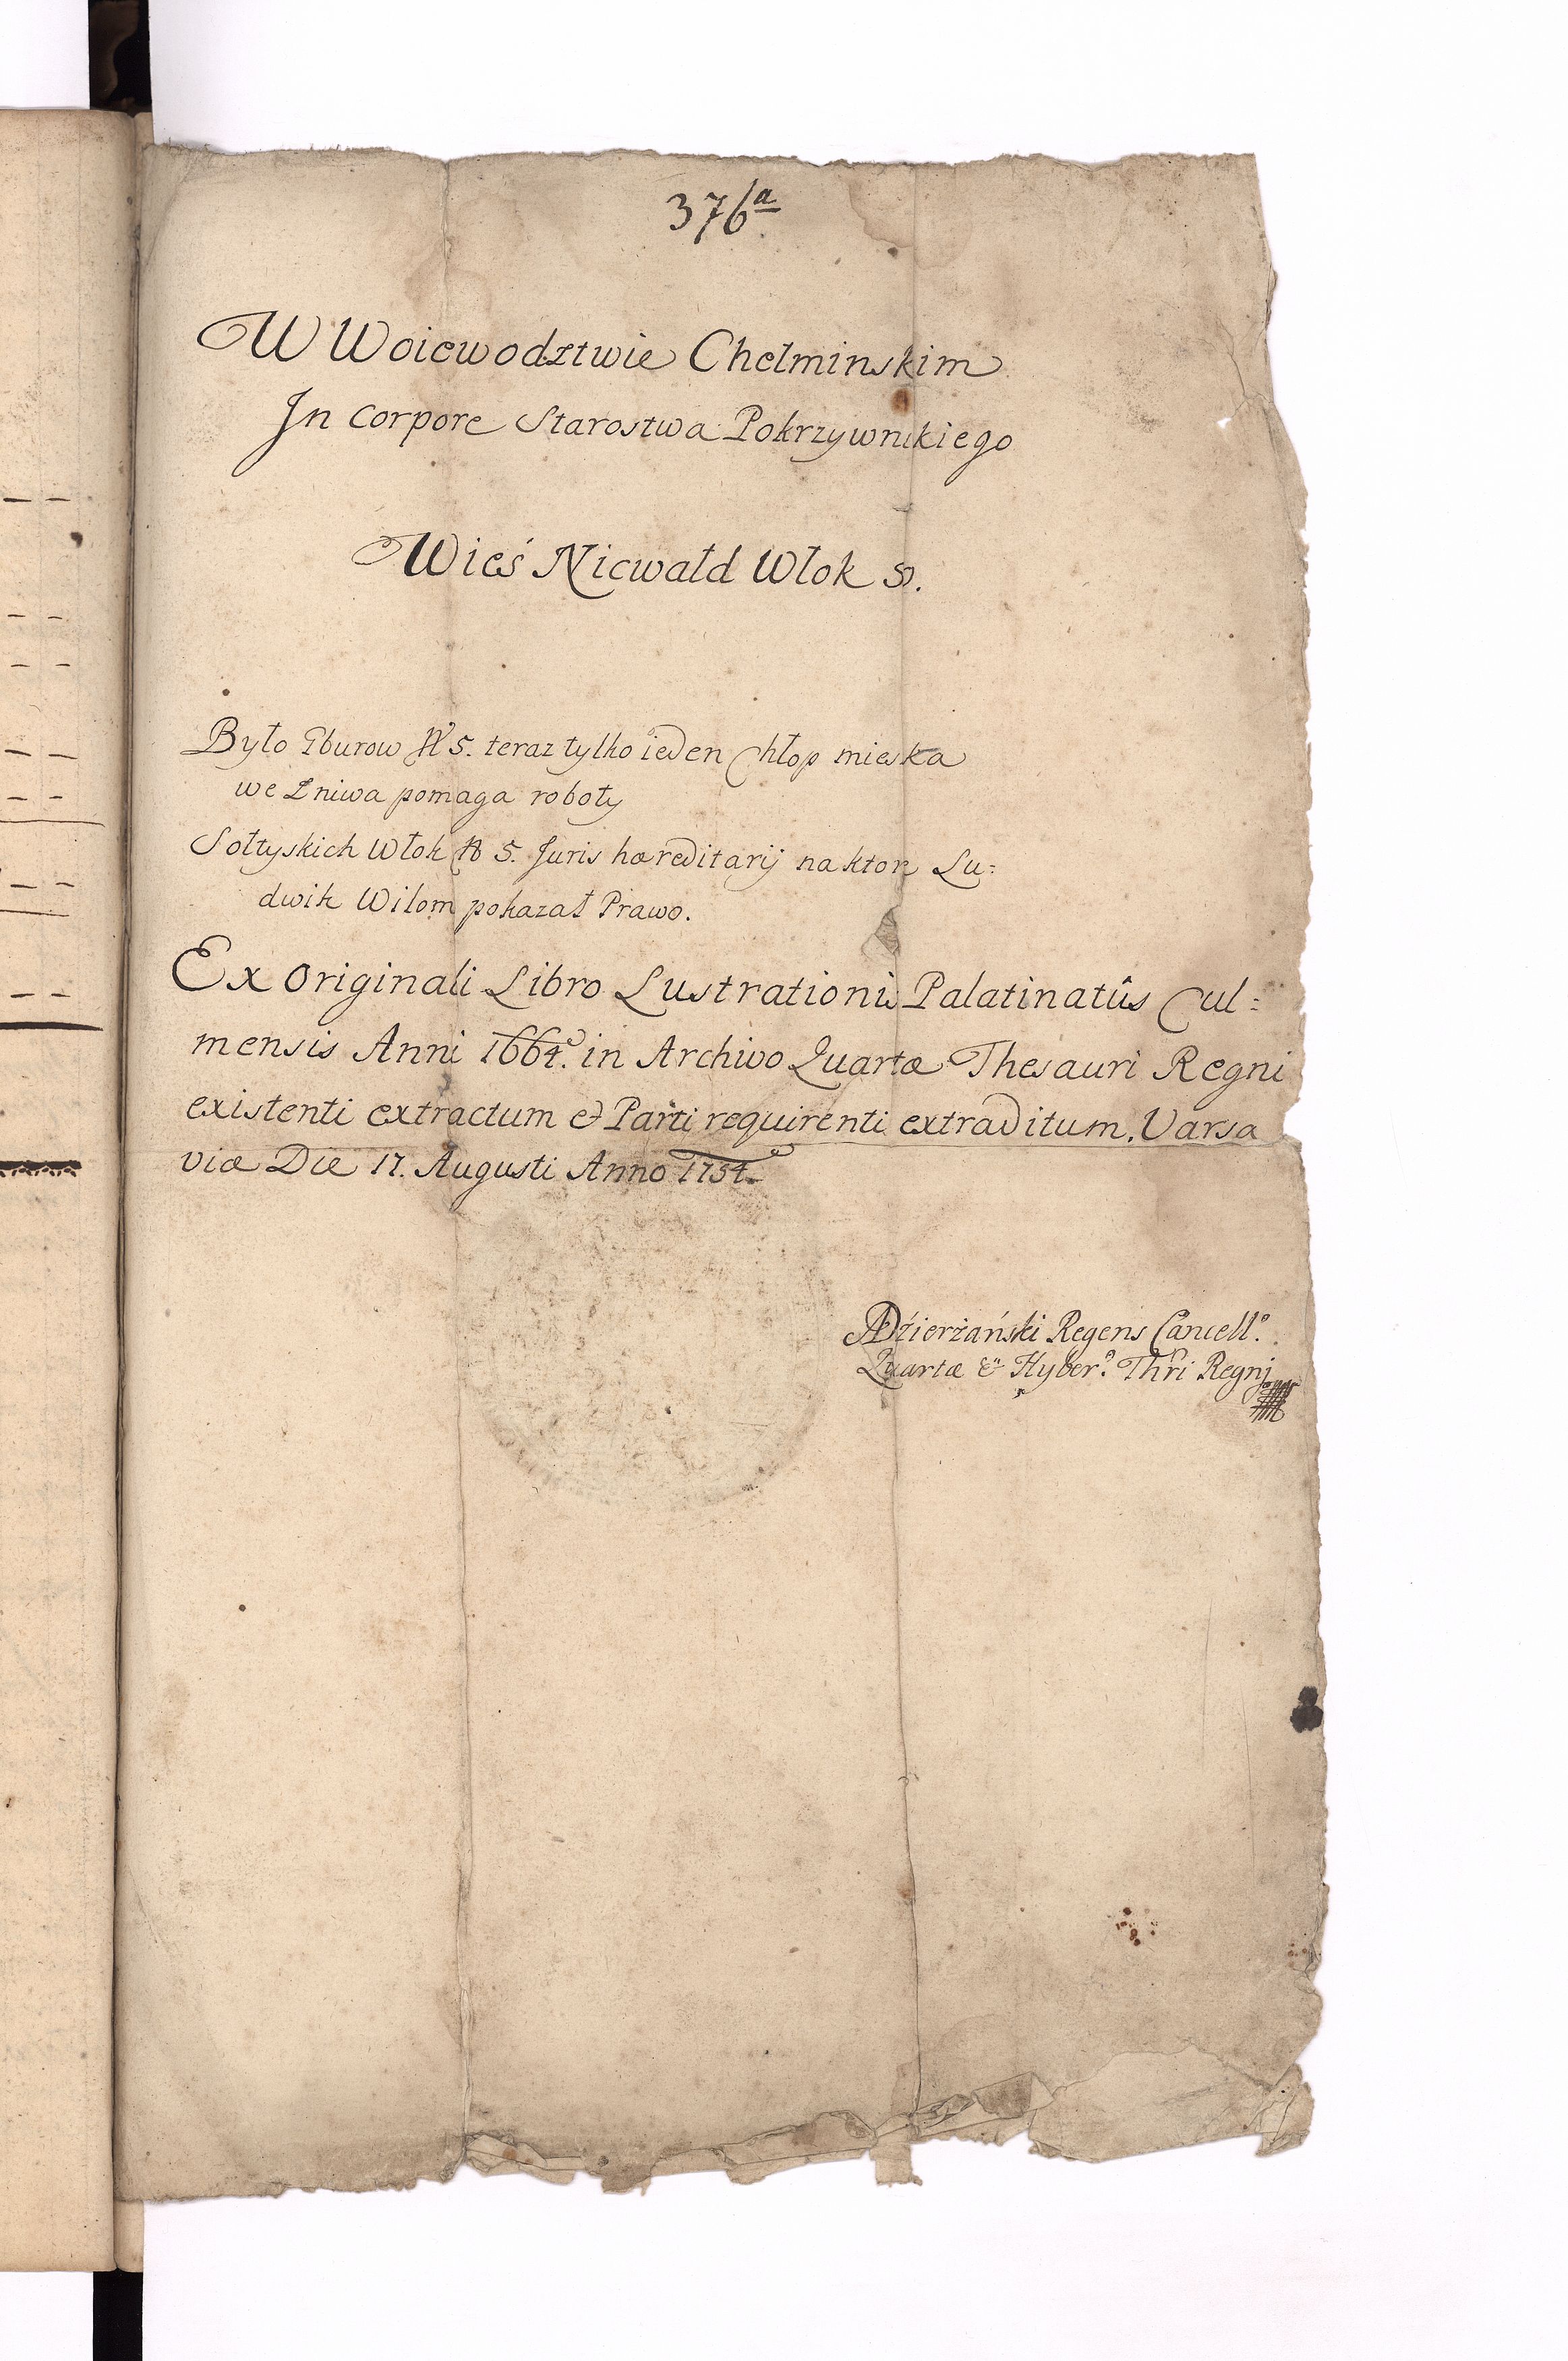 376a
W Woiewodztwie Chełminskim
Jn Corpore Starostwa Pokrzywnickiego
Wieś Niewałd Włok 50.
Było Gburow N 5. teraz tylko ieden Chłop mieska
we Żniwa pomaga roboty
Sołtyskich Włok N 5. Juris hæreditarij na ktore Lu=
dwik Wilom pokazał Prawo.
Ex Originali Libro Lustrationis Palatinatûs Cul=
mensis Anni 1664. in Archivo Quartæ Thesauri Regni
existenti extractum et Parti requirenti extraditum. Varsa
viæ Die 17. Augusti Anno 1754.
ADzierżański Regens Cancell.
Quartæ & Hyber. Thri Regni